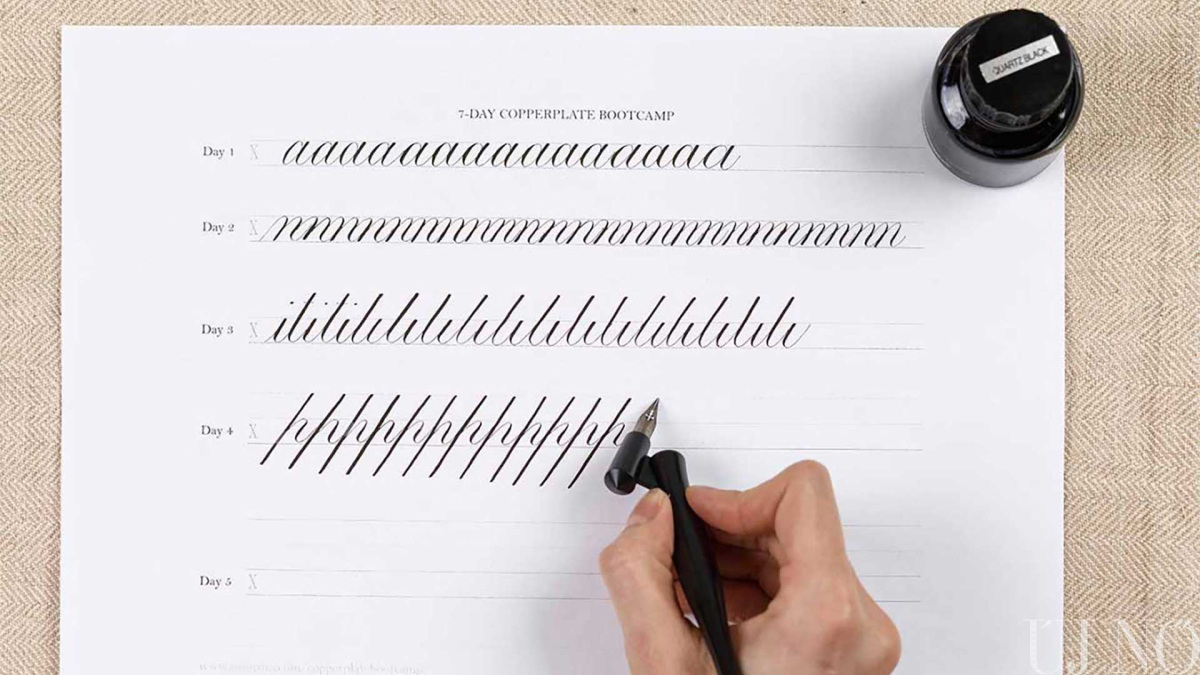 QUARTZ BLACK
7-DAY COPPERPLATE BOOTCAMP
Day 1 X aaaaaaaaaaaaaaa
Day 2 X nnnnnnnnnnnnnnnnnnnnnnn
Day 3 X ililililililililililililililil
Day 4 X pppppppppppp
Day 5 X